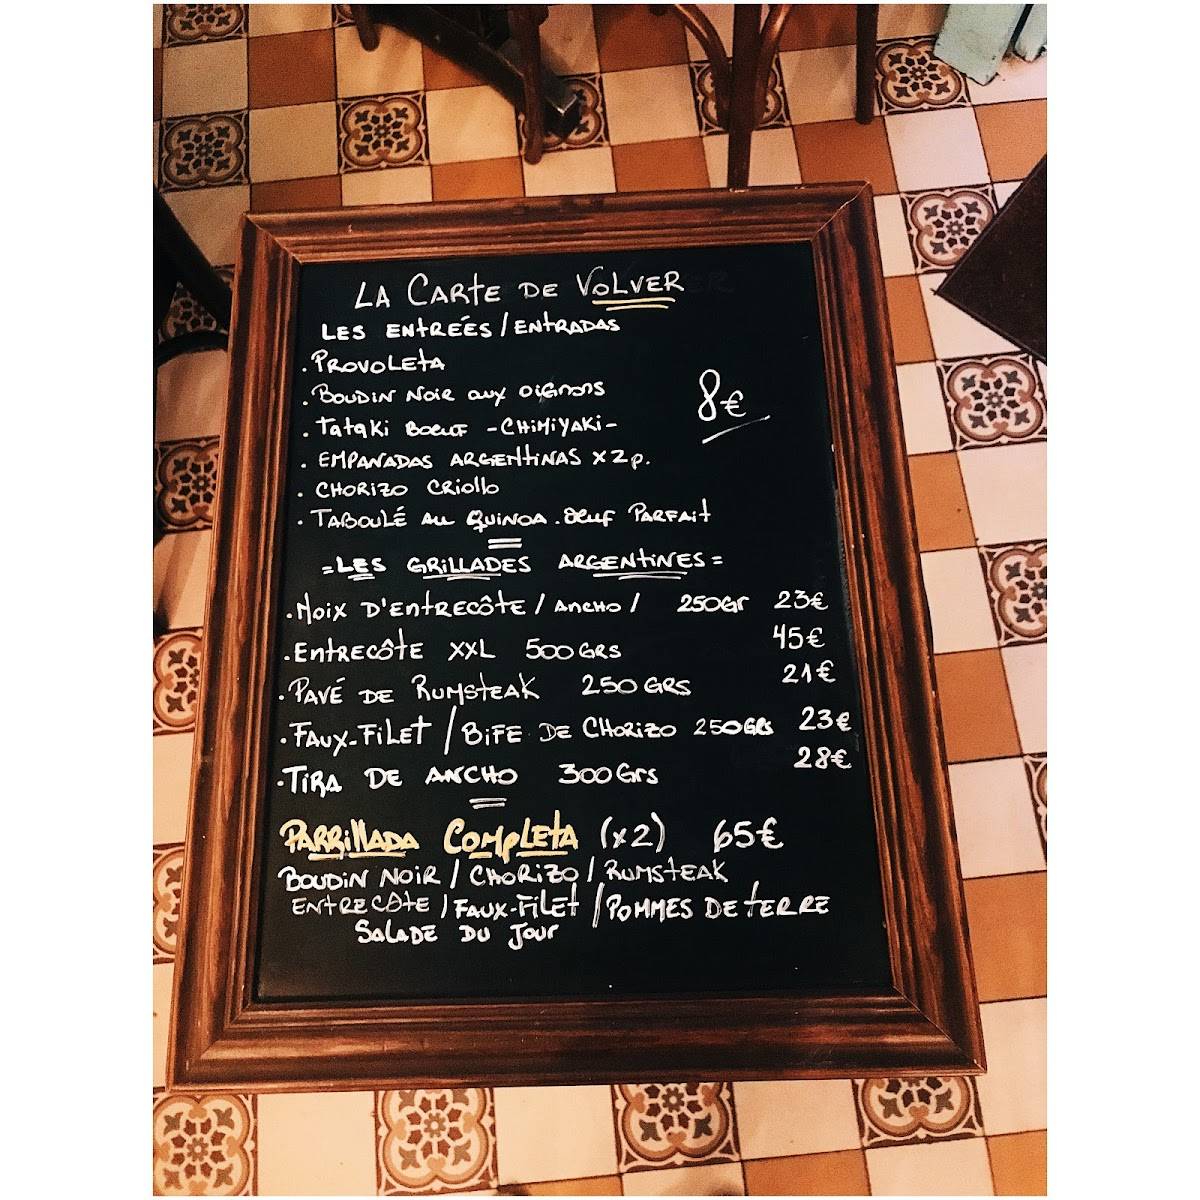 LA CARTE DE VOLVER
LES ENTRÉES / ENTRADAS
. PROVOLETA
. BOUDIN NOIR aux OIGNONS
8€
. TATAKI BOEUF - CHIMIYAKI -
. EMPANADAS ARGENTINAS x2p.
. CHORIZO CRIOLLO
. TABOULÉ AU QUINOA . OEUF PARFAIT
= LES GRILLADES ARGENTINES =
. NOIX D'ENTRECÔTE / ANCHO / 250Gr 23€
. ENTRECÔTE XXL 500GRS 45€
. PAVÉ DE RUMSTEAK 250GRS 21€
. FAUX-FILET / BIFE DE CHORIZO 250GRS 23€
. TIRA DE ANCHO 300Grs 28€
PARRILLADA COMPLETA (x2) 65€
BOUDIN NOIR / CHORIZO / RUMSTEAK
ENTRECÔTE / FAUX-FILET / POMMES DE TERRE
SALADE DU JOUR